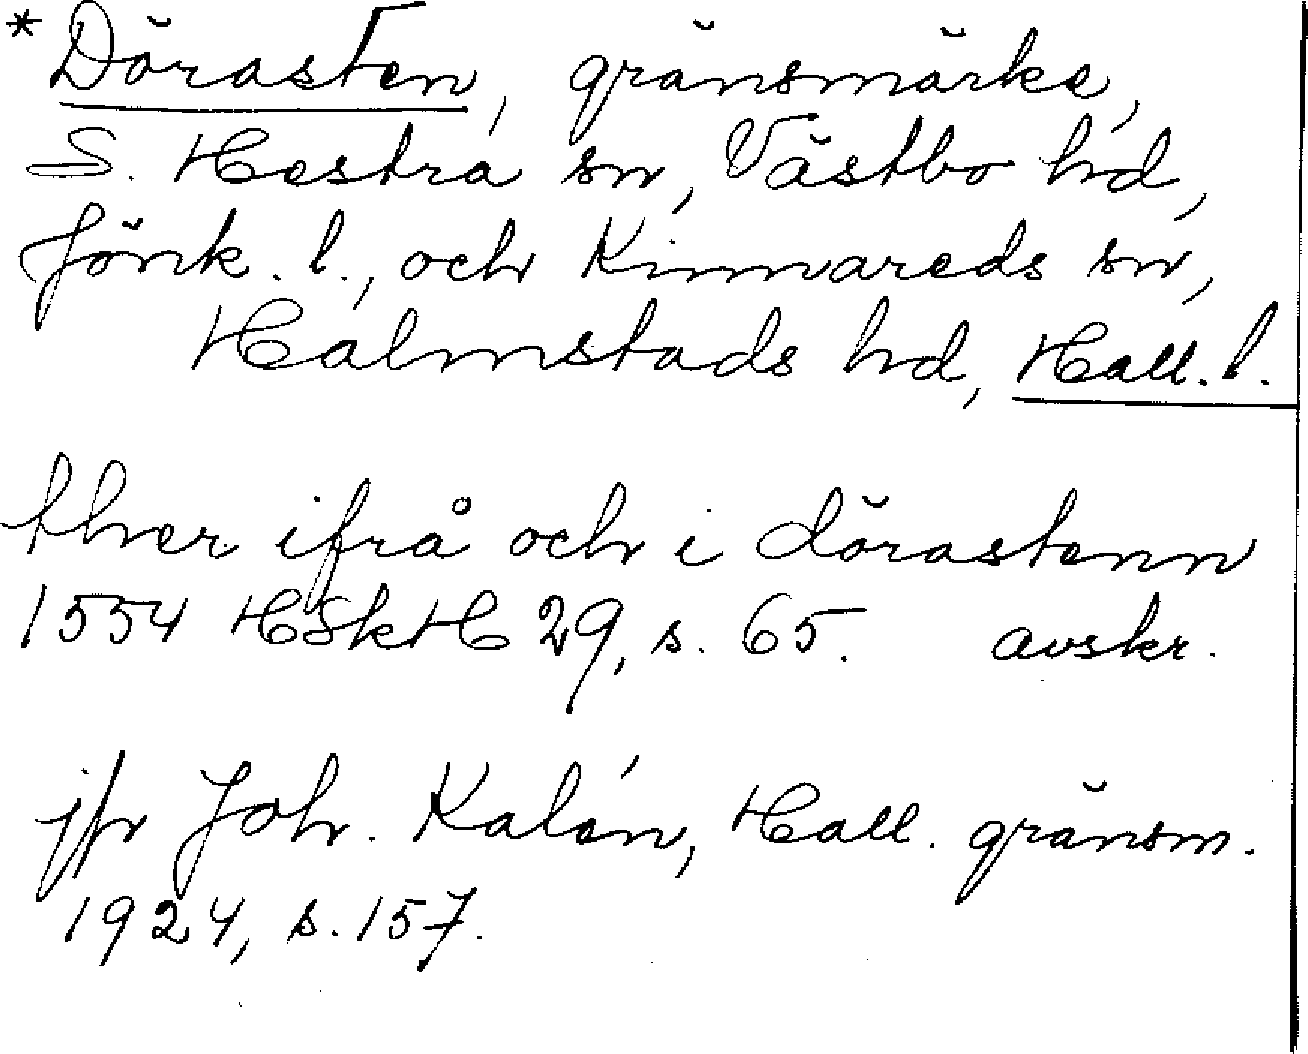 * Dörasten, gränsmärke,
S. Hestra sn, Västbo hd,
Jönk. l., och Kinnareds sn,
Halmstads hd, Hall. l.
ther ifrå och i dörastenn
1554 HSkH 29, s. 65. avskr.
jfr Joh. Kalén, Hall. gränsm.
1924, s. 157.